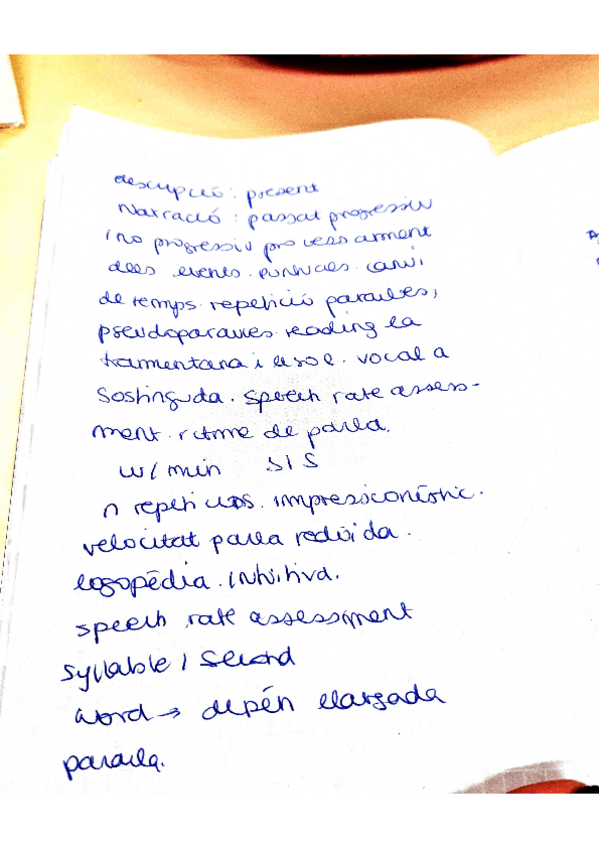 descripció: present
Narració: passat progressiu
i no progressiu processament
dels events. puntuals. canvi
de temps. repetició paraules,
pseudoparaules. reading la
tramuntana i el sol. vocal a
sostinguda. speech rate assess-
ment. ritme de parla.
w/min S/S
n repeticions. impressionístic.
velocitat parla reduïda.
logopèdia. intuïtiva.
speech rate assessment
syllable / second
word → depèn llargada
paraula.